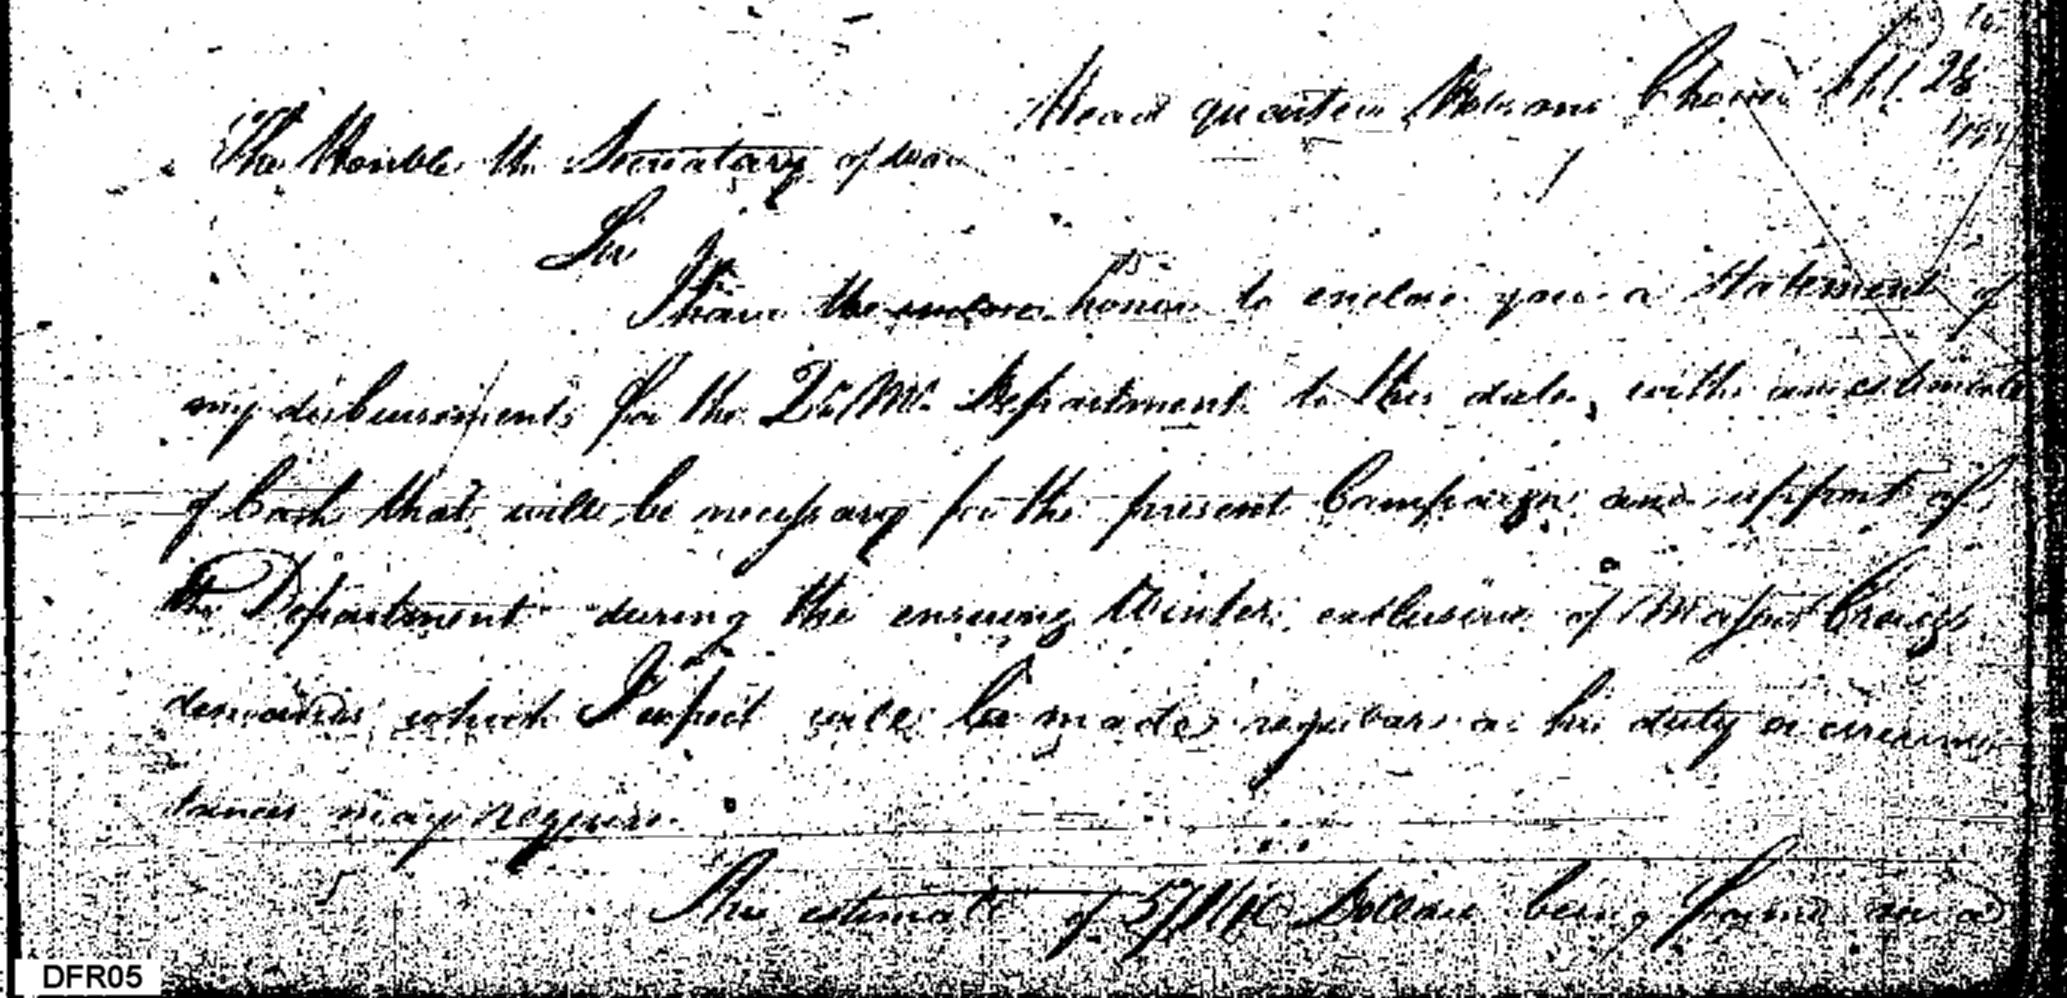 Head quarters Chovie Sept. 28
The Honble. the Secretary of War
Sir
I have the honor to enclose you a Statement of
my disbursements for the Qr. Mr. Department to this date, with an estimate
of Cash that will be necessary for the present Campaign and support of
the Department during the ensuing Winter, exclusive of Major Craigs
demands which I expect will be made regular as his duty or circums
tances may require.
The estimate of Dollars being found on a
DFR05